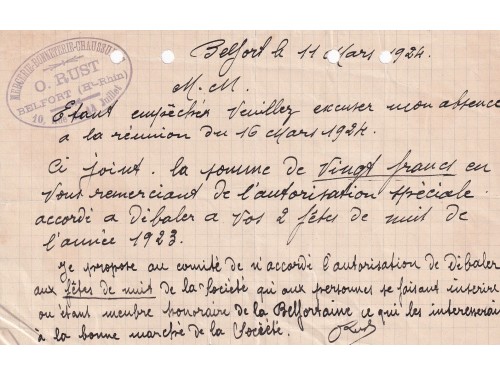 MERCERIE-BONNETERIE-CHAUSSURES
O. RUST
BELFORT (Ht-Rhin)
Juillet
Belfort le 11 Mars 1924.
M.M.
Etant empêchés Veuillez excuser mon absence
a la réunion du 16 Mars 1924.
Ci joint. la somme de Vingt francs en
Vous remerciant de l'autorisation spéciale
accordé a Débaler a Vos 2 fêtes de nuit de
l'année 1923.
Je propose au comité de n'accordé l'autorisation de Débaler
aux fêtes de nuit de la Société qu'aux personnes se faisant inscrire
ou étant membre honoraire de la Belfortaine ce qui les interesserait
à la bonne marche de la Société. Rust